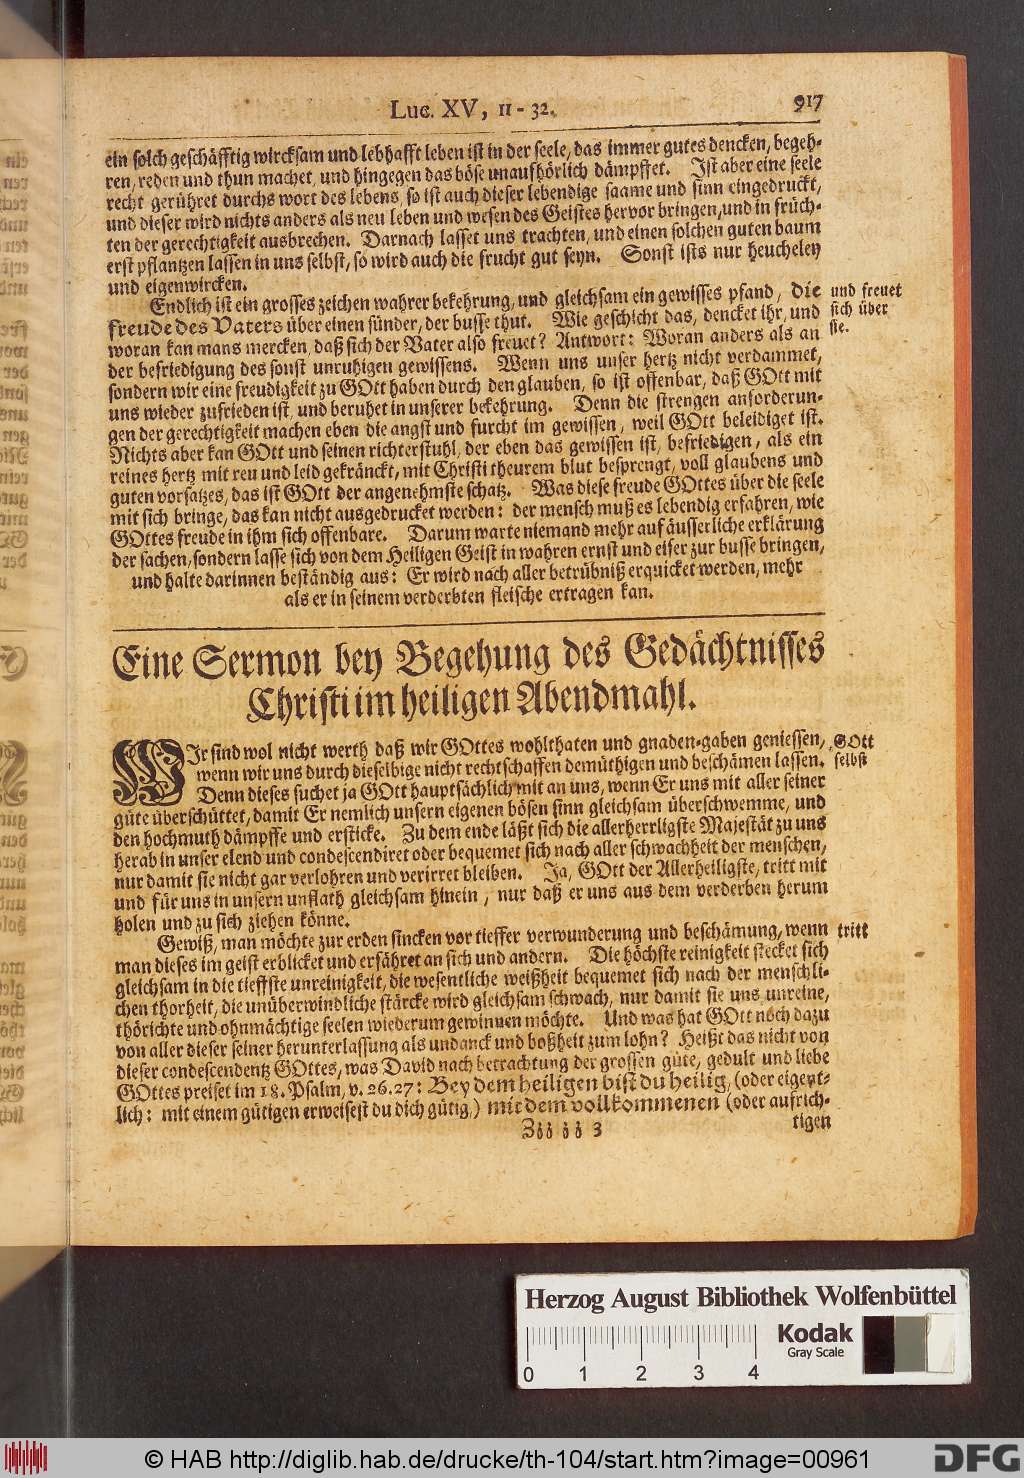 Luc. XV, 11-32.
917
ein solch geschäfftig wircksam und lebhafft leben ist in der seele, das immer gutes dencken, begeh-
ren, reden und thun machet, und hingegen das böse unaufhörlich dämpffet. Ist aber eine seele
recht gerühret durchs wort des lebens, so ist auch dieser lebendige saame und sinn eingedruckt,
und dieser wird nichts anders als neu leben und wesen des Geistes hervor bringen, und in früch-
ten der gerechtigkeit ausbrechen. Darnach lasset uns trachten, und einen solchen guten baum
erst pflantzen lassen in uns selbst, so wird auch die frucht gut seyn. Sonst ists nur heucheley
und eigenwircken.
Endlich ist ein grosses zeichen wahrer bekehrung, und gleichsam ein gewisses pfand, die
freude des Vaters über einen sünder, der busse thut. Wie geschicht das, dencket ihr, und
woran kan mans mercken, daß sich der Vater also freuet? Antwort: Woran anders als an
der befriedigung des sonst unruhigen gewissens. Wenn uns unser hertz nicht verdammet,
sondern wir eine freudigkeit zu GOtt haben durch den glauben, so ist offenbar, daß GOtt mit
uns wieder zufrieden ist, und beruhet in unserer bekehrung. Denn die strengen anforderun-
gen der gerechtigkeit machen eben die angst und furcht im gewissen, weil GOtt beleidiget ist.
Nichts aber kan GOtt und seinen richterstuhl, der eben das gewissen ist, befriedigen, als ein
reines hertz mit reu und leid gekränckt, mit Christi theurem blut besprengt, voll glaubens und
guten vorsatzes, das ist GOtt der angenehmste schatz. Was diese freude GOttes über die seele
mit sich bringe, das kan nicht ausgedrucket werden: der mensch muß es lebendig erfahren, wie
GOttes freude in ihm sich offenbare. Darum warte niemand mehr auf äusserliche erklärung
der sachen, sondern lasse sich von dem Heiligen Geist in wahren ernst und eifer zur busse bringen,
und halte darinnen beständig aus: Er wird nach aller betrübniß erquicket werden, mehr
als er in seinem verderbten fleische ertragen kan.
und freuet
sich über
sie.
Eine Sermon bey Begehung des Gedächtnisses
Christi im heiligen Abendmahl.
WIr sind wol nicht werth daß wir GOttes wohlthaten und gnaden-gaben geniessen,
wenn wir uns durch dieselbige nicht rechtschaffen demüthigen und beschämen lassen.
Denn dieses suchet ja GOtt hauptsächlich mit an uns, wenn Er uns mit aller seiner
güte überschüttet, damit Er nemlich unsern eigenen bösen sinn gleichsam überschwemme, und
den hochmuth dämpffe und ersticke. Zu dem ende läßt sich die allerherrligste Majestät zu uns
herab in unser elend und condescendiret oder bequemet sich nach aller schwachheit der menschen,
nur damit sie nicht gar verlohren und verirret bleiben. Ja, GOtt der Allerheiligste, tritt mit
und für uns in unsern unflath gleichsam hinein, nur daß er uns aus dem verderben herum
holen und zu sich ziehen könne.
GOtt
selbst
Gewiß, man möchte zur erden sincken vor tieffer verwunderung und beschämung, wenn
man dieses im geist erblicket und erfähret an sich und andern. Die höchste reinigkeit stecket sich
gleichsam in die tieffste unreinigkeit, die wesentliche weißheit bequemet sich nach der menschli-
chen thorheit, die unüberwindliche stärcke wird gleichsam schwach, nur damit sie uns unreine,
thörichte und ohnmächtige seelen wiederum gewinnen möchte. Und was hat GOtt noch dazu
von aller dieser seiner herunterlassung als undanck und boßheit zum lohn? Heißt das nicht von
dieser condescendentz GOttes, was David nach betrachtung der grossen güte, gedult und liebe
GOttes preiset im 18. Psalm, v. 26.27: Bey dem heiligen bist du heilig, (oder eigent-
lich: mit einem gütigen erweisest du dich gütig,) mit dem vollkommenen (oder aufrich-
tritt
Zzz zz 3
tigen
Herzog August Bibliothek Wolfenbüttel
Kodak
Gray Scale
0 1 2 3 4
© HAB http://diglib.hab.de/drucke/th-104/start.htm?image=00961
DFG